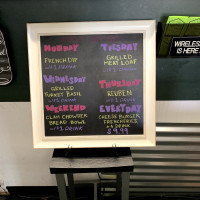 MONDAY
FRENCH DIP
W/ 1 CHOICE
TUESDAY
GRILLED
MEAT LOAF
W/ 1 CHOICE
WEDNESDAY
GRILLED
TURKEY BASIL
W/ 1 CHOICE
THURSDAY
REUBEN
W/ 1 CHOICE
WEEKEND
CLAM CHOWDER
BREAD BOWL
W/ 1 CHOICE
EVERYDAY
CHEESE BURGER
FRENCH FRIES
& DRINK
$9.99
WIRELESS
IS HERE